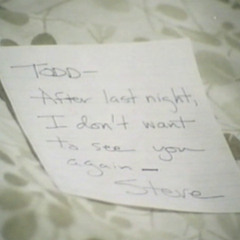 TODD-
After last night,
I don't want
to see you
again -
Steve